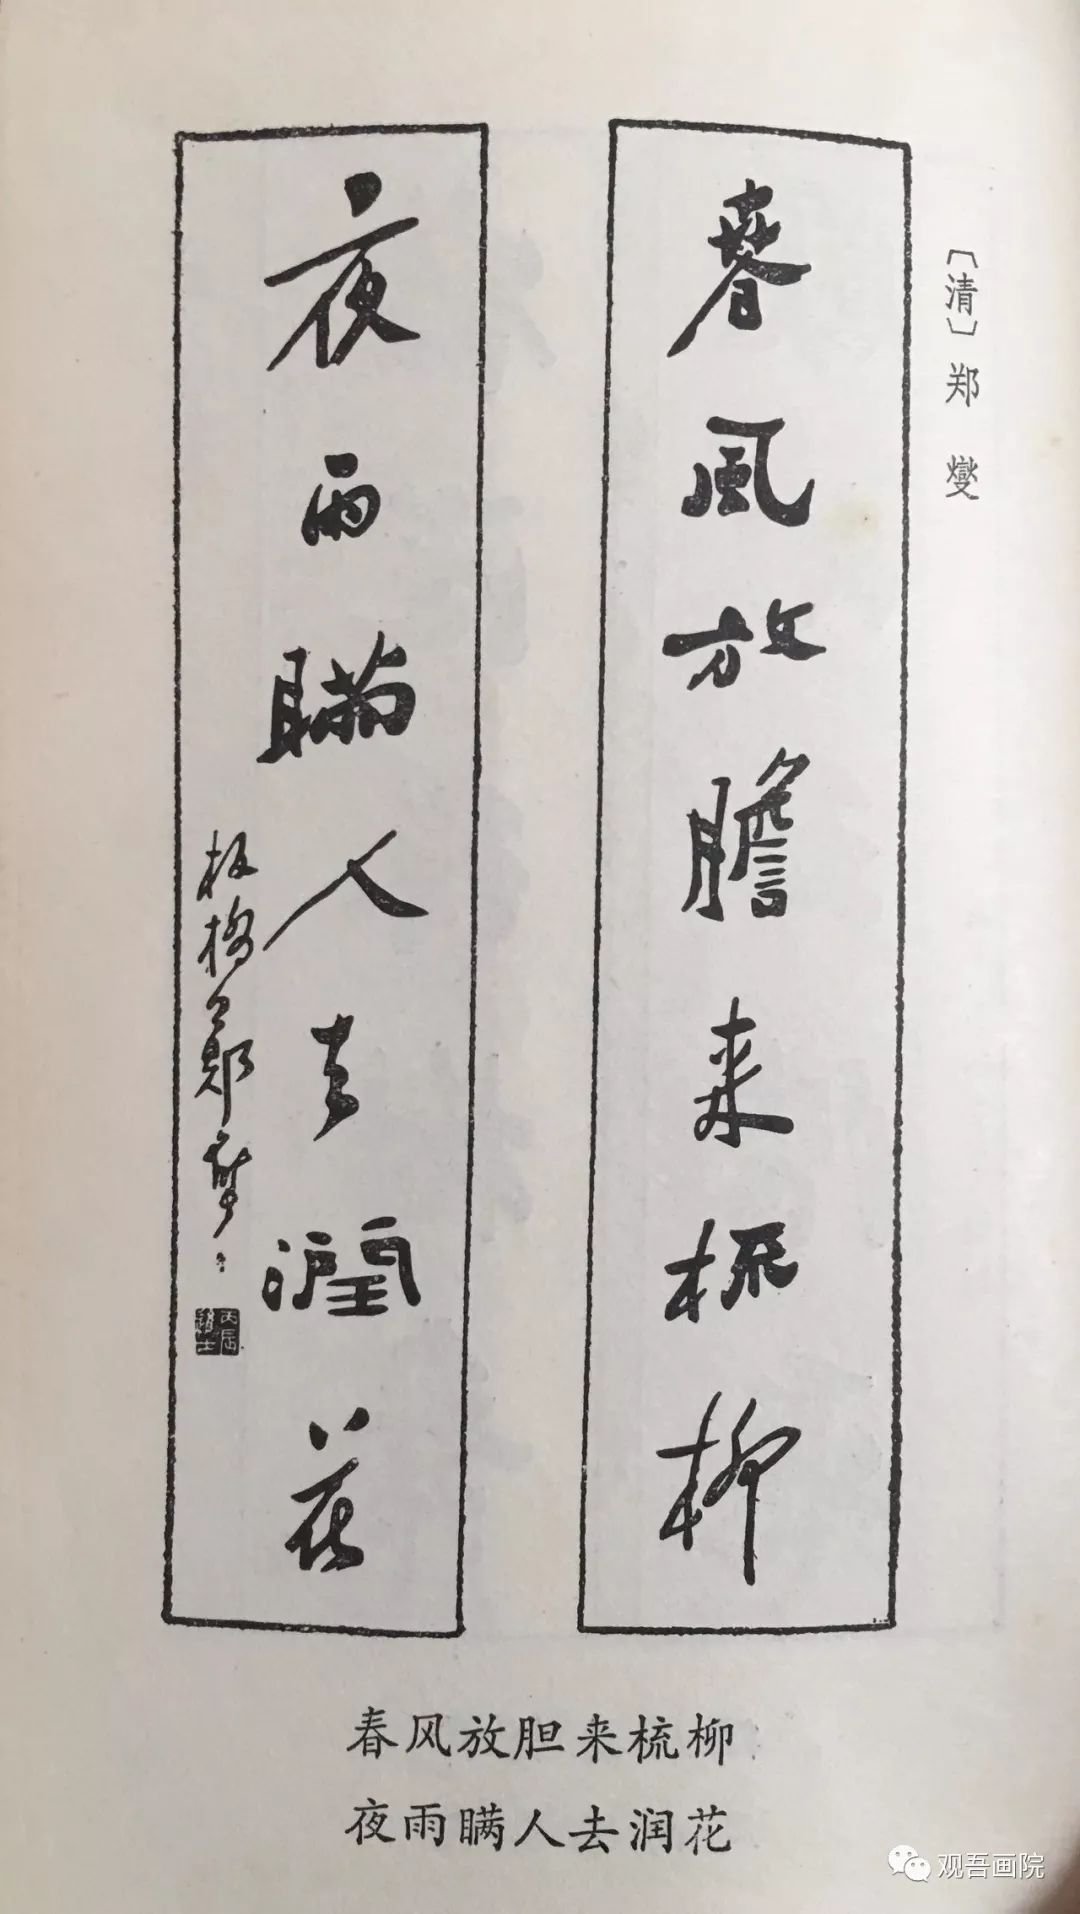 〔清〕郑 燮
春風放膽来梳柳
夜雨瞞人去潤花
板橋鄭燮
丙辰進士
春风放胆来梳柳
夜雨瞒人去润花
观吾画院